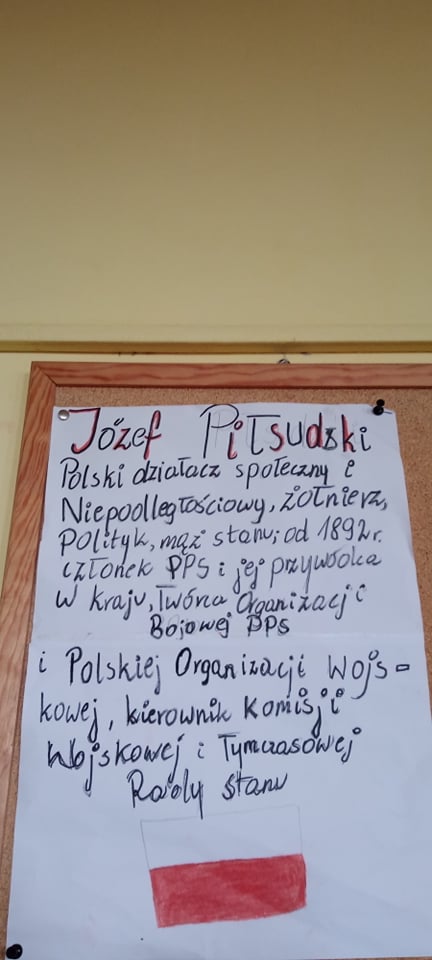 Józef Piłsudzki
Polski działacz społeczny i
Niepodległościowy, żołnierz,
Polityk, mąż stanu; od 1892r.
członek PPS i jej przywódca
w kraju, Twórca Organizacji
Bojowej PPS
i Polskiej Organizacji Wojs=
kowej, kierownik Komisji
Wojskowej i Tymczasowej
Rady Stanu